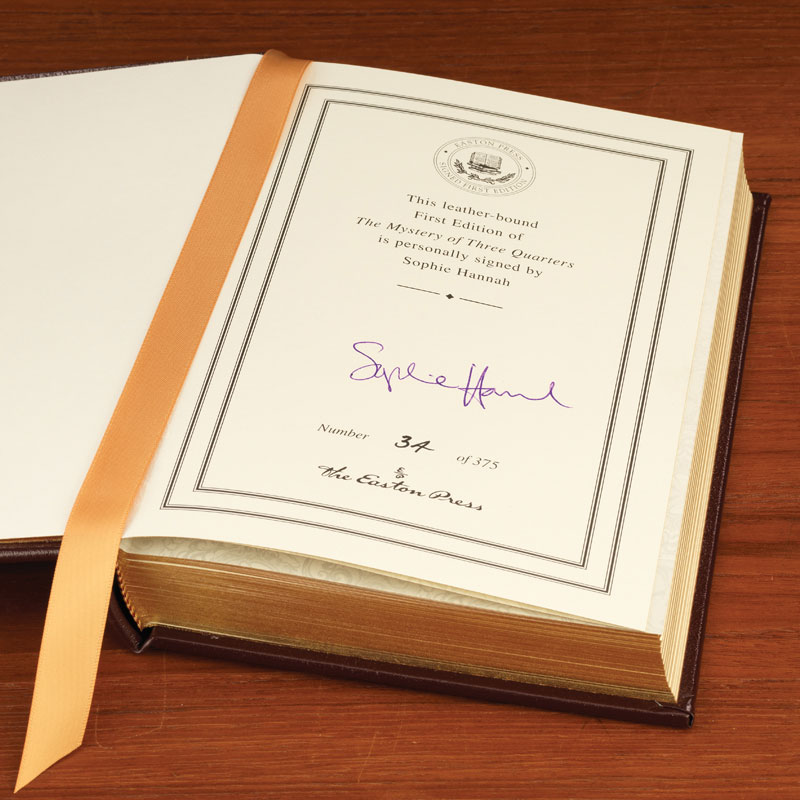 EASTON PRESS
SIGNED FIRST EDITION
This leather-bound
First Edition of
The Mystery of Three Quarters
is personally signed by
Sophie Hannah
Sophie Hannah
Number 34 of 375
the Easton Press